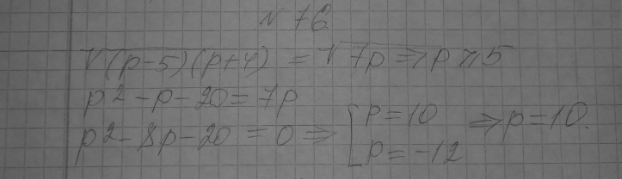 № 76
√(p-5)(p+4) = √7p ⇒ p ⩾ 5
p² - p - 20 = 7p
p² - 8p - 20 = 0 ⇒ [ p = 10
p = -12 ⇒ p = 10.